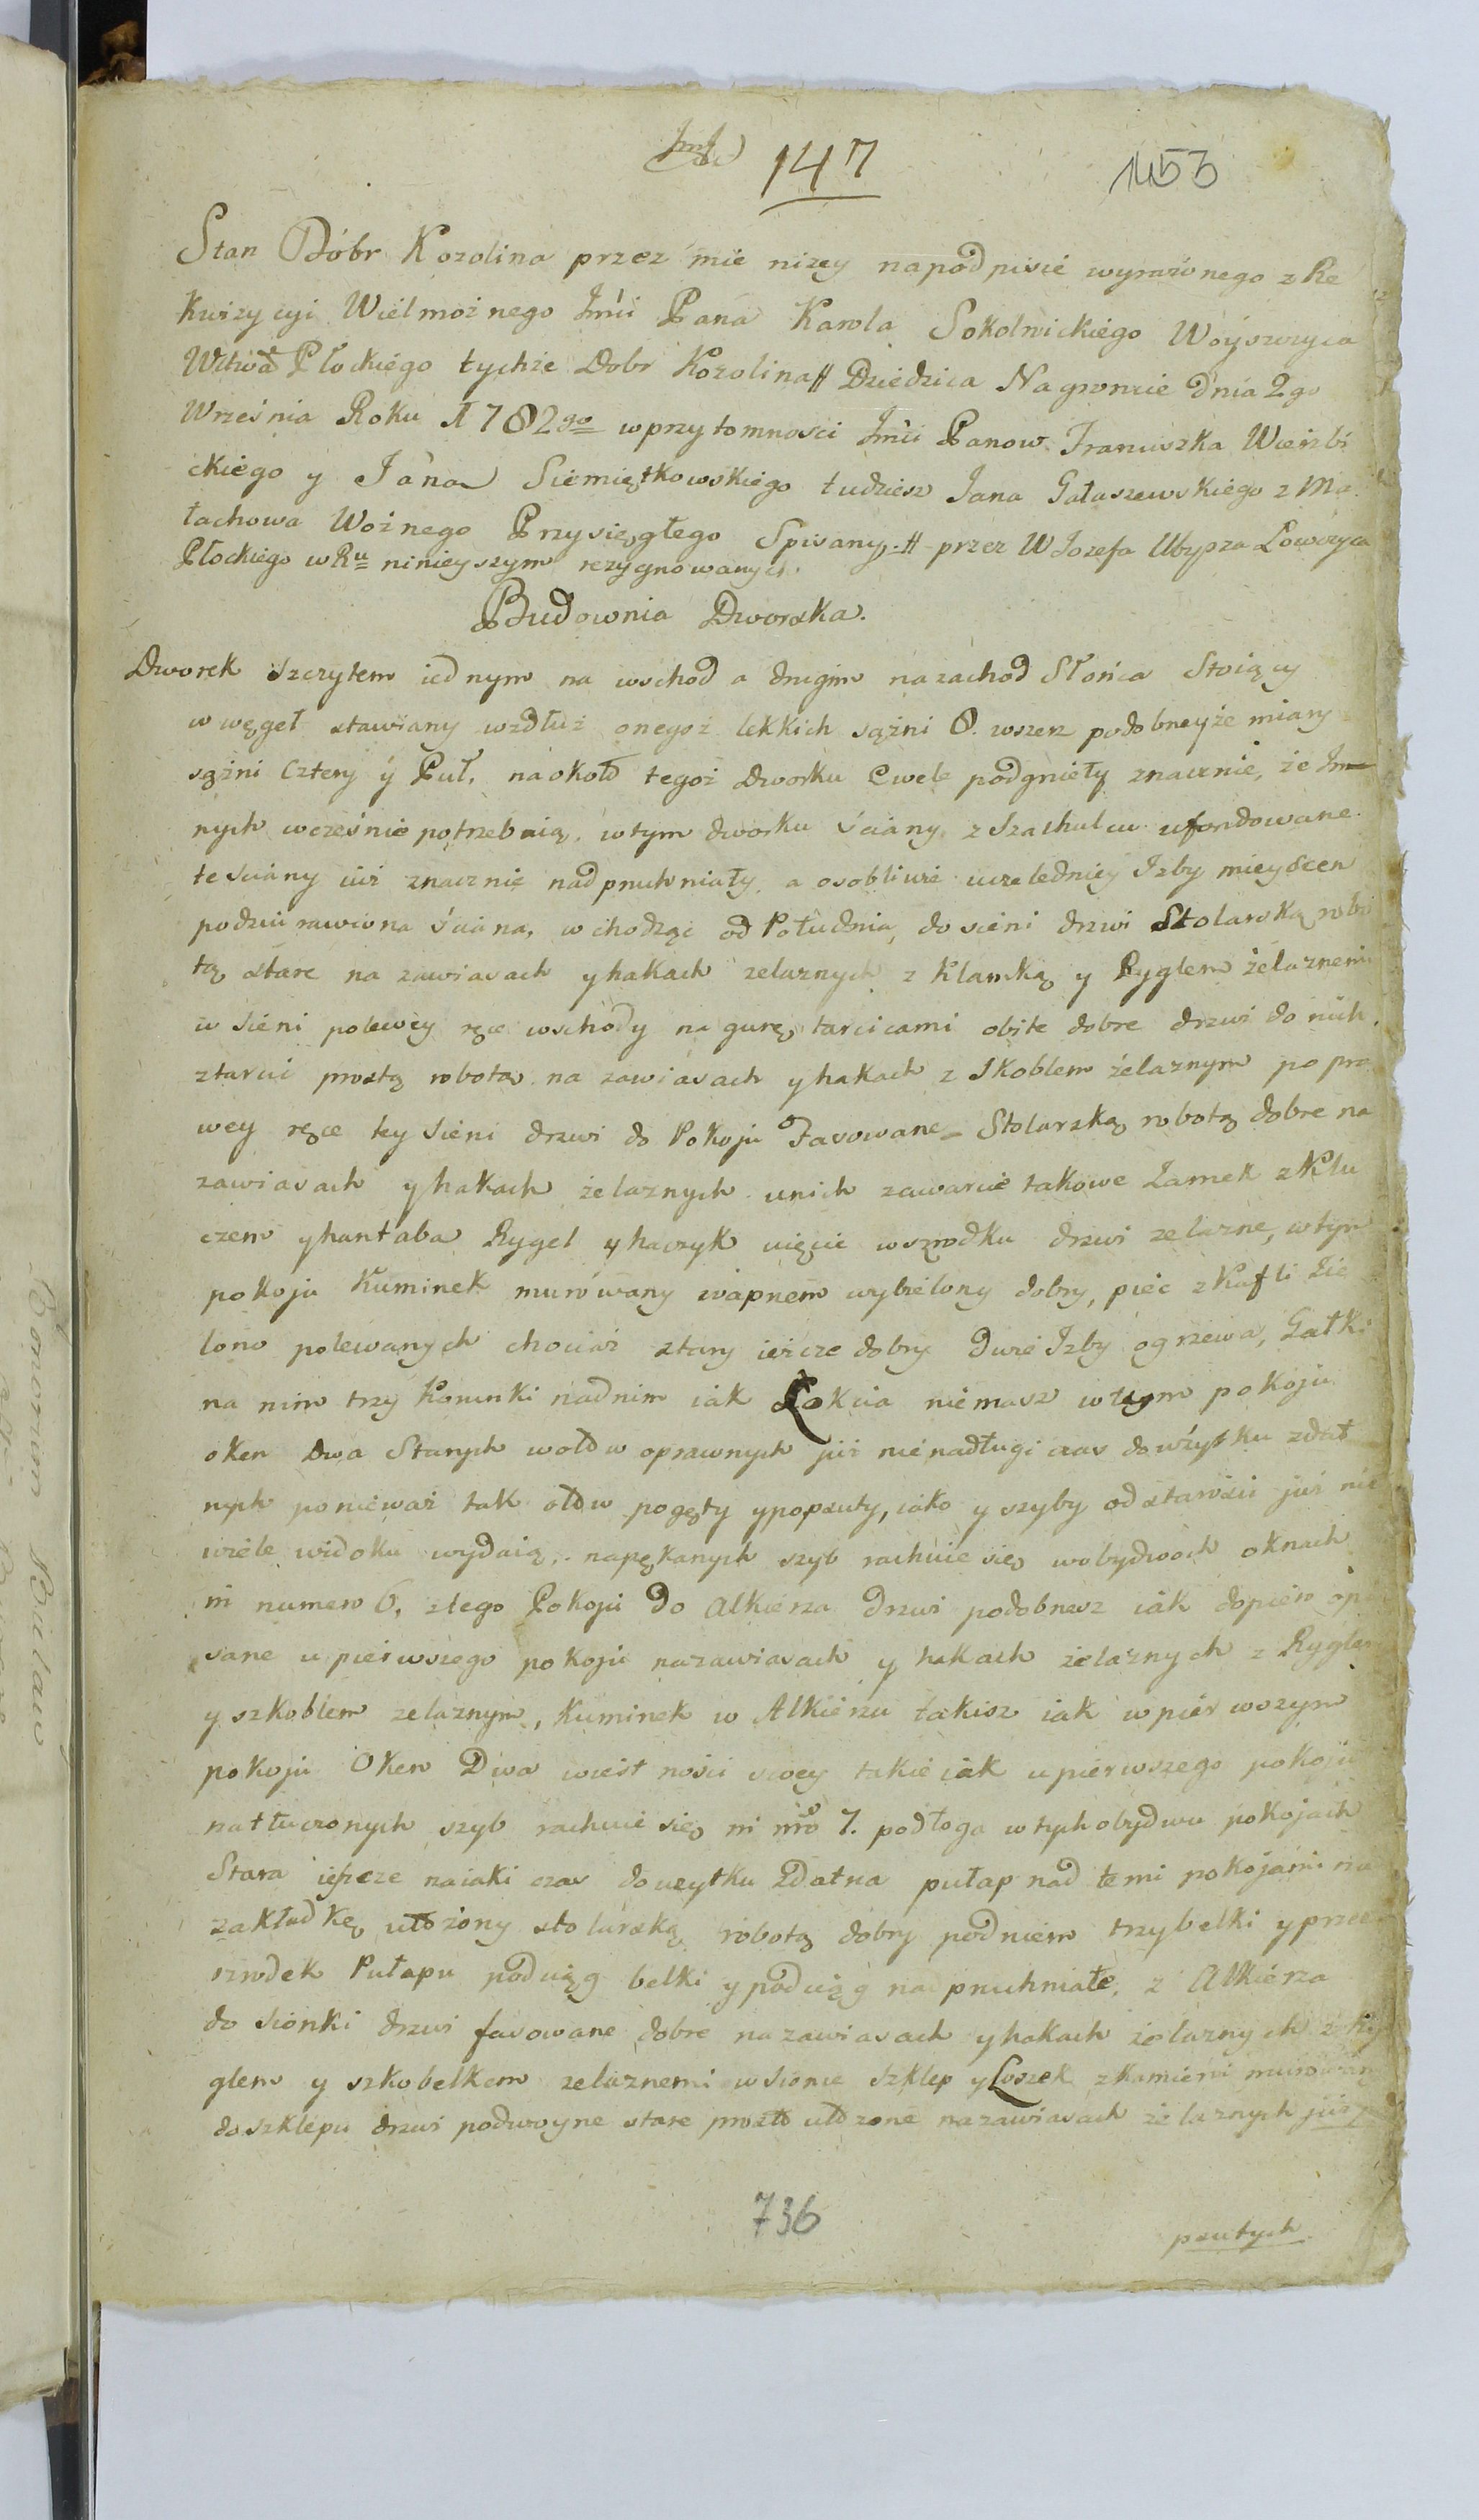 147
1153
Stan Dóbr Kozolina przez mie nizey napodpisie wyrażonego z Re
kwizycyi Wielmożnego Jmci Pana Karola Sokolnickiego Woyszczyca
Wztwa Płockiego tychże Dobr Kozolina # Dziedzica Nagroncie dnia 2go
Wrzesnia Roku 1782go wprzytomnosci Jmci Panow Franciszka Wierzbi
ckiego y Jana Siemiątkowskiego tudziesz Jana Gałaszewskiego z Ma
łachowa Woźnego Przysięgłego Spisany. # przez W Jozefa Łowczyca
Płockiego w Ru ninieyszym rezygnowanych.
Budownia Dworska.
Dworek Szczytem iednym na wschod a drugim nazachod Słońca Stoiący
w węgeł stawiany wzdłuż onegoż lekkich sążni 8. wszerz podobneyże miary
sążni Cztery y Puł, naokoło tegoż Dworku Cwele podgnieły znacznie, że In=
nych wcześnie potrzebuią, wtym dworku ściany zSzachulcu ufondowane.
te sciany iuż znacznie nadpruchniały, a osobliwie Izby mieyscem
podziurawiona ściana, wchodząc od Południa, do sieni drzwi Stolarską robo
tą stare na zawiasach y hakach zelaznych z Klamką y Ryglem żelaznemi
w Sieni polewey ręce wschody na gurę tarcicami obite dobre drzwi do nich
ztarcic prostą robotą na zawiasach y hakach z Skoblem żelaznym po pra
wey ręce tey Sieni drzwi do Pokoju Fasowane Stolarską robotą dobre na
zawiasach y hakach żelaznych unich zawarcie takowe Zamek z Klu
czem y hantaba Rygel y haczyk wszrodku drzwi zelazne, wtym
pokoju Kuminek murowany wapnem wybielony dobry, piec z Kafli Zie
lono polewanych chociaż stary ieszcze dobry Dwie Izby ogrzewa, Gałki
na nim trzy Korunki nadnim iak Łokcia niemasz wtym pokoju
oken Dwa Starych wołow oprawnych już nienadługi czas doużytku zdat
nych ponieważ tak ołow pogęty y popsuty, iako y szyby od starości już nie
wiele widoku wydaią, napękanych szyb rachuie się wobydwoch oknach
in numero 6, ztego Pokoju do Alkierza drzwi podobnesz iak dopiero opi
sane u pierwszego pokoju nazawiasach y hakach żelaznych z Ryglem
y szkoblem zelaznym, Kuminek w Alkierzu takisz iak w pierwszym
pokoju Oken Dwa swey takie iak upierwszego pokoju
natłuczonych szyb rachuie się in nro 7. podłoga wtych obydwu pokojach
Stara ieszcze naiaki czas doużytku Zdatna pułap nad temi pokojami na
zakładkę ułożony stolarską robotą dobry podniem trzy belki y przez
szrodek Pułapu podciąg belki y podciąg nadpruchniałe, z Alkierza
do sionki drzwi fasowane dobre nazawiasach y hakach żelaznych z Ry
glem y szkobelkem zelaznemi w sionce Szklep y Loszek zkamieni murowany
do szklepu drzwi podwoyne stare prosto ułożone nazawiasach żelaznych już
736
psutych